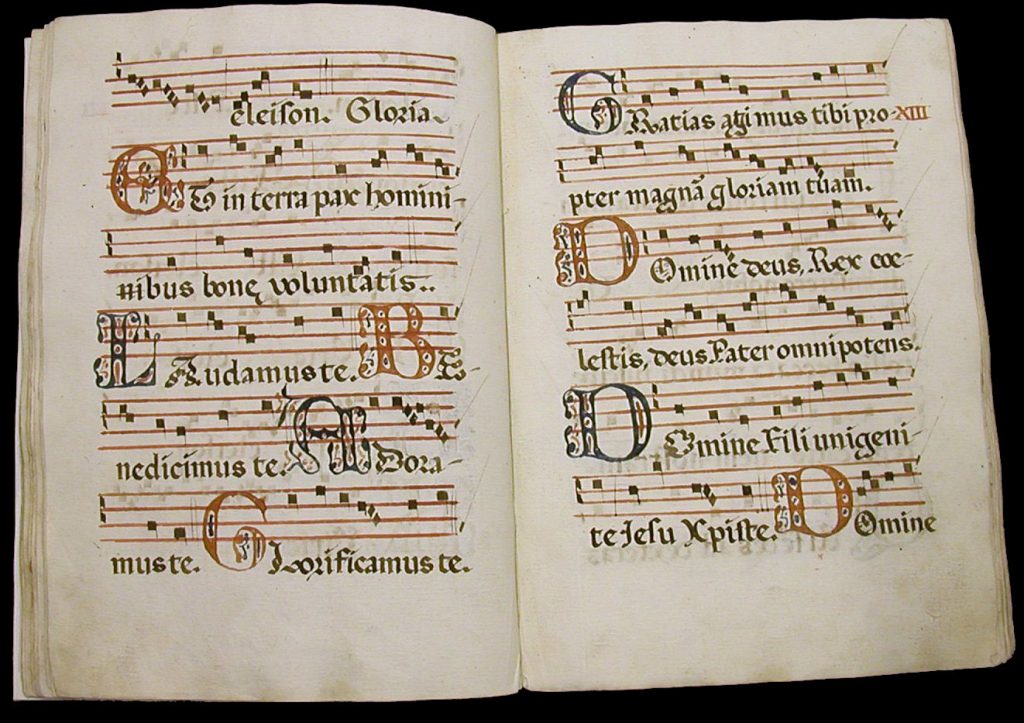 eleison. Gloria.
ET in terra pax homini-
nibus bonę voluntatis..
LAudamus te. BE-
nedicimus te. ADora-
mus te. GLorificamus te.
GRatias agimus tibi pro- XIII
pter magnã gloriam tuam.
DOmine deus, Rex cœ-
lestis, deus Pater omnipotens.
DOmine Fili unigeni-
te Jesu Xpiste. DOmine